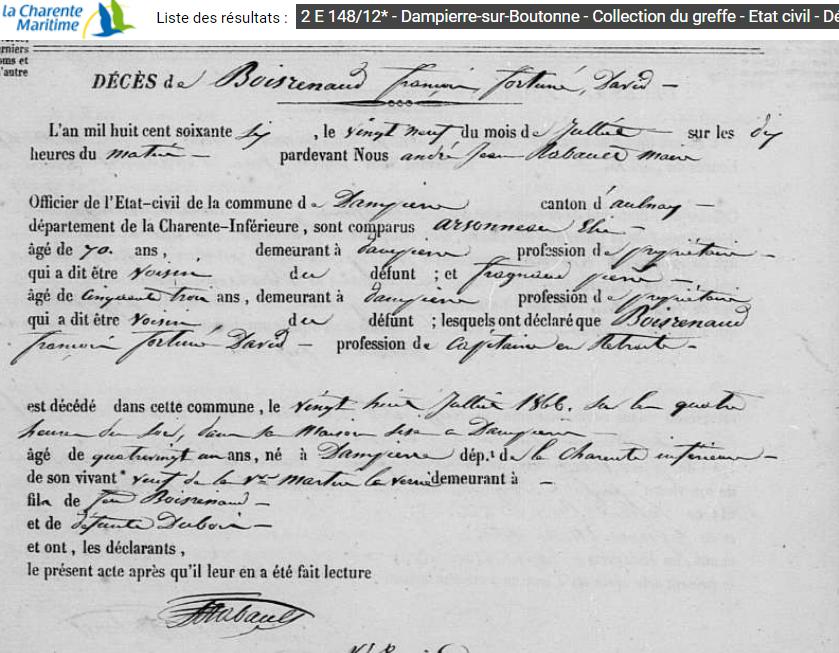 la Charente
Maritime
Liste des résultats : 2 E 148/12* - Dampierre-sur-Boutonne - Collection du greffe - Etat civil - Dé
rniers
oms et
'autre
DÉCÈS de Boisrenaud françois fortuné, David —
L'an mil huit cent soixante six, le vingt neuf du mois de Juillet — sur les dix
heures du matin — pardevant Nous andré Jean Rabault maire
Officier de l'Etat-civil de la commune de Dampierre canton d'aulnay —
département de la Charente-Inférieure, sont comparus arsonneau Elie —
âgé de 70. ans, demeurant à dampierre profession de propriétaire —
qui a dit être Voisin du défunt ; et fragnaud pierre —
âgé de cinquante trois ans, demeurant à dampierre profession de propriétaire
qui a dit être Voisin, du défunt ; lesquels ont déclaré que Boisrenaud
françois fortuné David — profession de Capitaine en Retraite —
est décédé dans cette commune, le vingt huit Juillet 1866. Sur les quatre
heures du soir, dans sa Maison sise a Dampierre —
âgé de quatrevingt un ans, né à Dampierre dép.t de la charente inférieure —
de son vivant veuf de la Vve martin demeurant à —
fils de Boisrenaud —
et de défunte Dubois —
et ont, les déclarants,
le présent acte après qu'il leur en a été fait lecture
Rabault